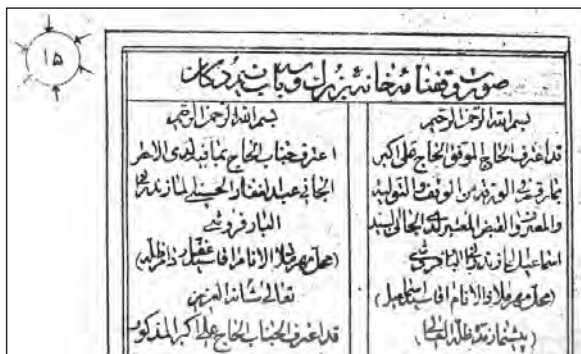 ۱۵
صورت وقفنامه خانه بزرگ و سه باب نیم دکان
بسم الله الرحمن الرحیم
قد اعترف الحاج الموفق الحاج علی اکبر
بما رقم فی الورقة من الوقف و التولیة
و المصرف و القبض المعتبر لدی الجانی السید
اسماعیل المازندرانی البارفروشی
(محل مهر ملاذ الانام آقا سید اسماعیل)
(پیشنماز مد ظله العالی)
بسم الله الرحمن الرحیم
اعترف جناب الحاج بما فیه لدی الاحقر
الجانی عبد الغفار الحسینی المازندرانی
البارفروشی
(محل مهر ملاذ الانام آقا سید دام ظله)
تعالی شانه العزیز
قد اعترف الجناب الحاج علی اکبر المذکور